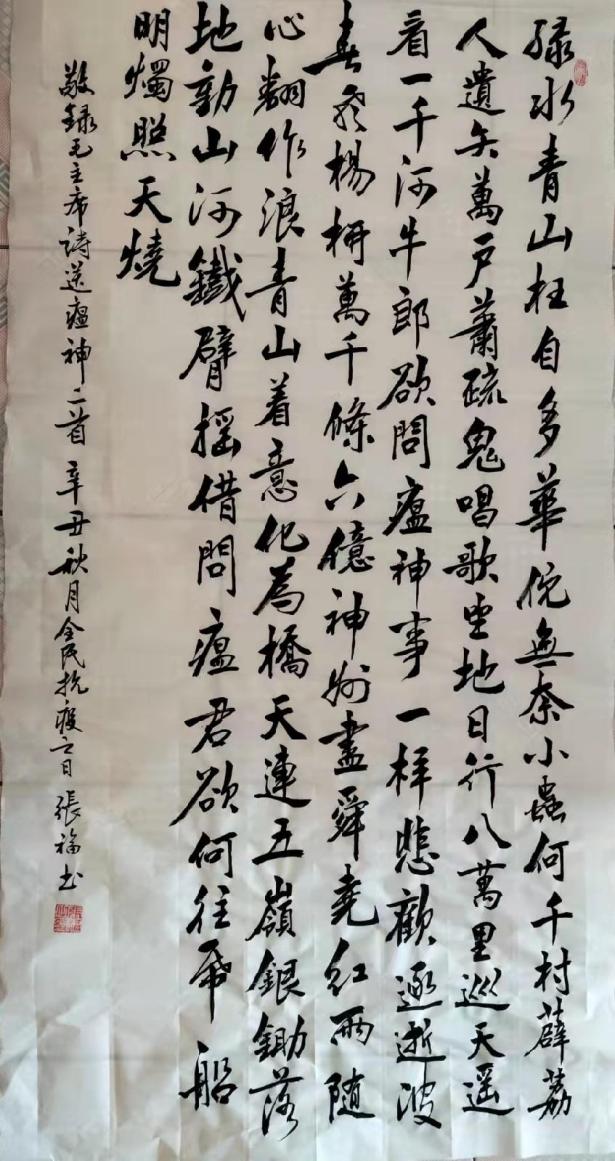 緑水青山枉自多華佗無奈小蟲何千村薜荔
人遺矢萬戶蕭疏鬼唱歌坐地日行八萬里巡天遥
看一千河牛郎欲問瘟神事一样悲歡逐逝波
春風楊柳萬千條六億神州盡舜堯红雨随
心翻作浪青山着意化為橋天連五嶺銀鋤落
地動山河鐵臂摇借問瘟君欲何往帋船
明燭照天燒
敬録毛主席詩送瘟神二首 辛丑秋月全民抗疫之日 張福书